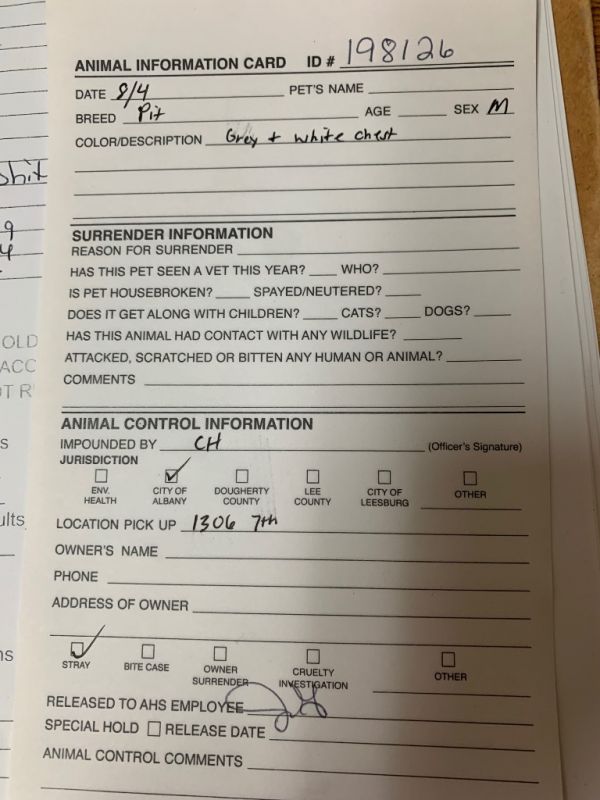 ANIMAL INFORMATION CARD ID # 198126
DATE 8/4 PET'S NAME
BREED Pit AGE SEX M
COLOR/DESCRIPTION Grey + white chest
SURRENDER INFORMATION
REASON FOR SURRENDER
HAS THIS PET SEEN A VET THIS YEAR? WHO?
IS PET HOUSEBROKEN? SPAYED/NEUTERED?
DOES IT GET ALONG WITH CHILDREN? CATS? DOGS?
HAS THIS ANIMAL HAD CONTACT WITH ANY WILDLIFE?
ATTACKED, SCRATCHED OR BITTEN ANY HUMAN OR ANIMAL?
COMMENTS
ANIMAL CONTROL INFORMATION
IMPOUNDED BY CH (Officer's Signature)
JURISDICTION
ENV. HEALTH CITY OF ALBANY DOUGHERTY COUNTY LEE COUNTY CITY OF LEESBURG OTHER
LOCATION PICK UP 1306 7th
OWNER'S NAME
PHONE
ADDRESS OF OWNER
STRAY BITE CASE OWNER SURRENDER CRUELTY INVESTIGATION OTHER
RELEASED TO AHS EMPLOYEE
SPECIAL HOLD RELEASE DATE
ANIMAL CONTROL COMMENTS